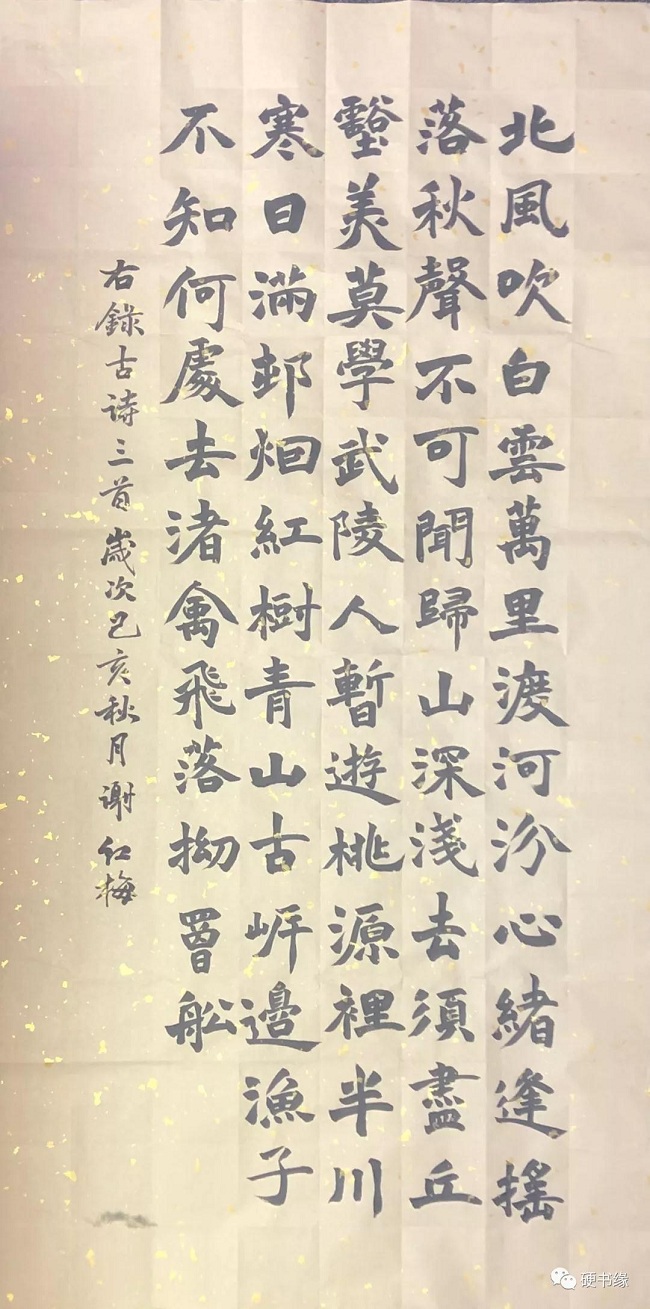 北風吹白雲萬里渡河汾心緒逢搖
落秋聲不可聞歸山深淺去須盡丘
壑美莫學武陵人暫遊桃源裡半川
寒日滿邨烟紅樹青山古岸邊漁子
不知何處去渚禽飛落拗罾舩
右錄古诗三首歲次己亥秋月谢红梅
硬书缘